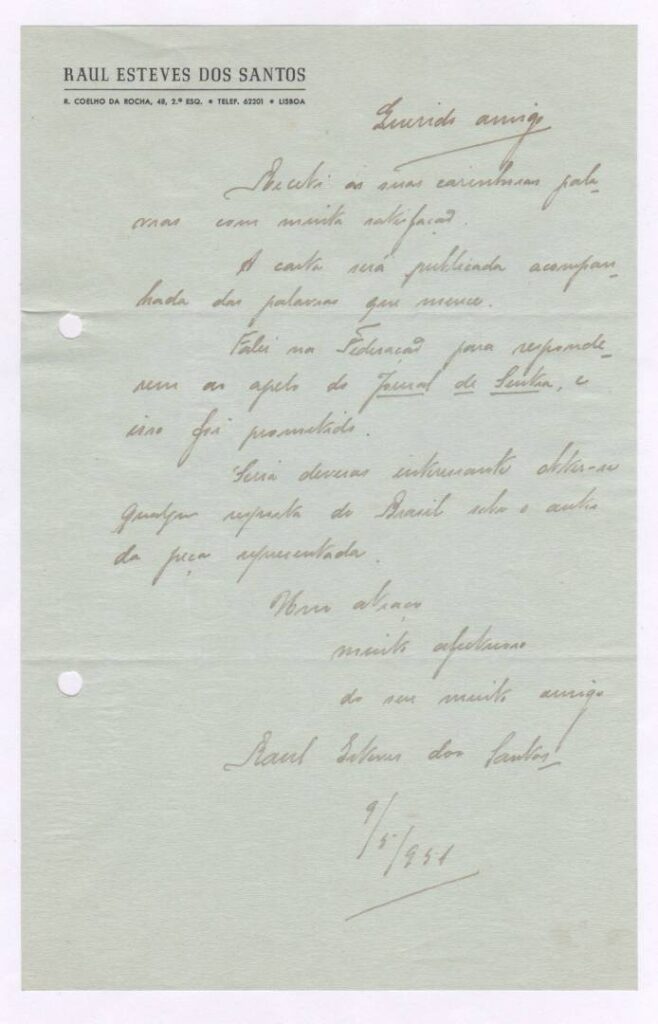 RAUL ESTEVES DOS SANTOS
R. COELHO DA ROCHA, 48, 2.º ESQ. • TELEF. 62201 • LISBOA
Querido amigo
Recebi as suas carinhosas pala-
vras com muita satisfação.
A carta será publicada acompa-
nhada das palavras que merece.
Falei na Federação para responde-
rem ao apelo do Jornal de Sintra, e
isso foi prometido.
Seria deveras interessante obter-se
qualquer resposta do Brasil sobre o autor
da peça representada.
Um abraço
muito afectuoso
do seu muito amigo
Raul Esteves dos Santos
9/5/951